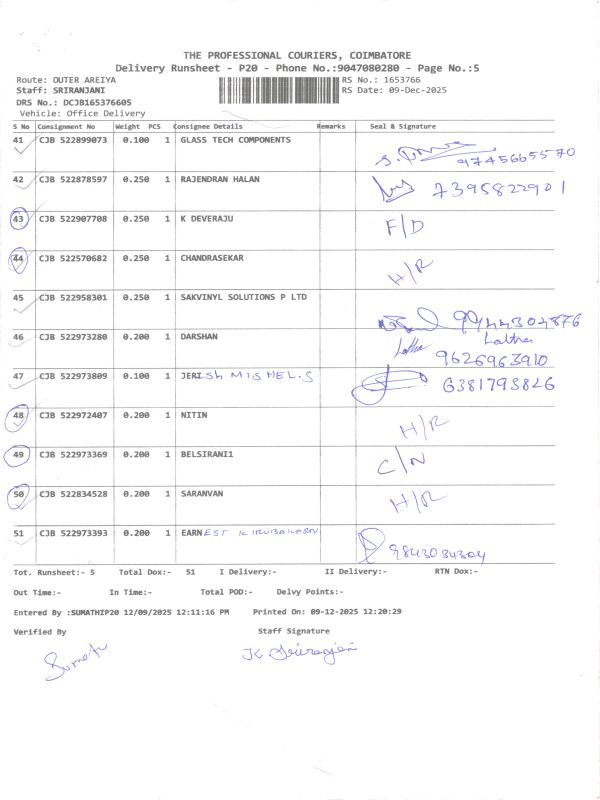 THE PROFESSIONAL COURIERS, COIMBATORE
Delivery Runsheet - P20 - Phone No.:9047080280 - Page No.:5
Route: OUTER AREIYA RS No.: 1653766
Staff: SRIRANJANI RS Date: 09-Dec-2025
DRS No.: DCJB165376605
Vehicle: Office Delivery
S No Consignment No Weight PCS Consignee Details Remarks Seal & Signature
41 CJB 522899073 0.100 1 GLASS TECH COMPONENTS 9745665570
42 CJB 522878597 0.250 1 RAJENDRAN HALAN 7395822901
43 CJB 522907708 0.250 1 K DEVERAJU F/D
44 CJB 522570682 0.250 1 CHANDRASEKAR H/R
45 CJB 522958301 0.250 1 SAKVINYL SOLUTIONS P LTD
46 CJB 522973280 0.200 1 DARSHAN Latha Latha
9626963910
47 CJB 522973809 0.100 1 JERISH MISHEL.S 6381793826
48 CJB 522972407 0.200 1 NITIN H/R
49 CJB 522973369 0.200 1 BELSIRANI1 C/N
50 CJB 522834528 0.200 1 SARANVAN H/R
51 CJB 522973393 0.200 1 EARNEST 9843034304
Tot. Runsheet:- 5 Total Dox:- 51 I Delivery:- II Delivery:- RTN Dox:-
Out Time:- In Time:- Total POD:- Delvy Points:-
Entered By :SUMATHIP20 12/09/2025 12:11:16 PM Printed On: 09-12-2025 12:20:29
Verified By Staff Signature